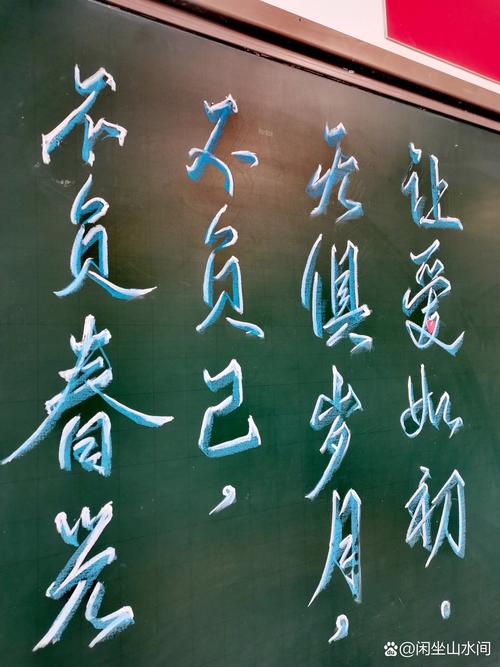 不负春光
不负己，
无惧岁月，
让爱如初.
@闲坐山水间